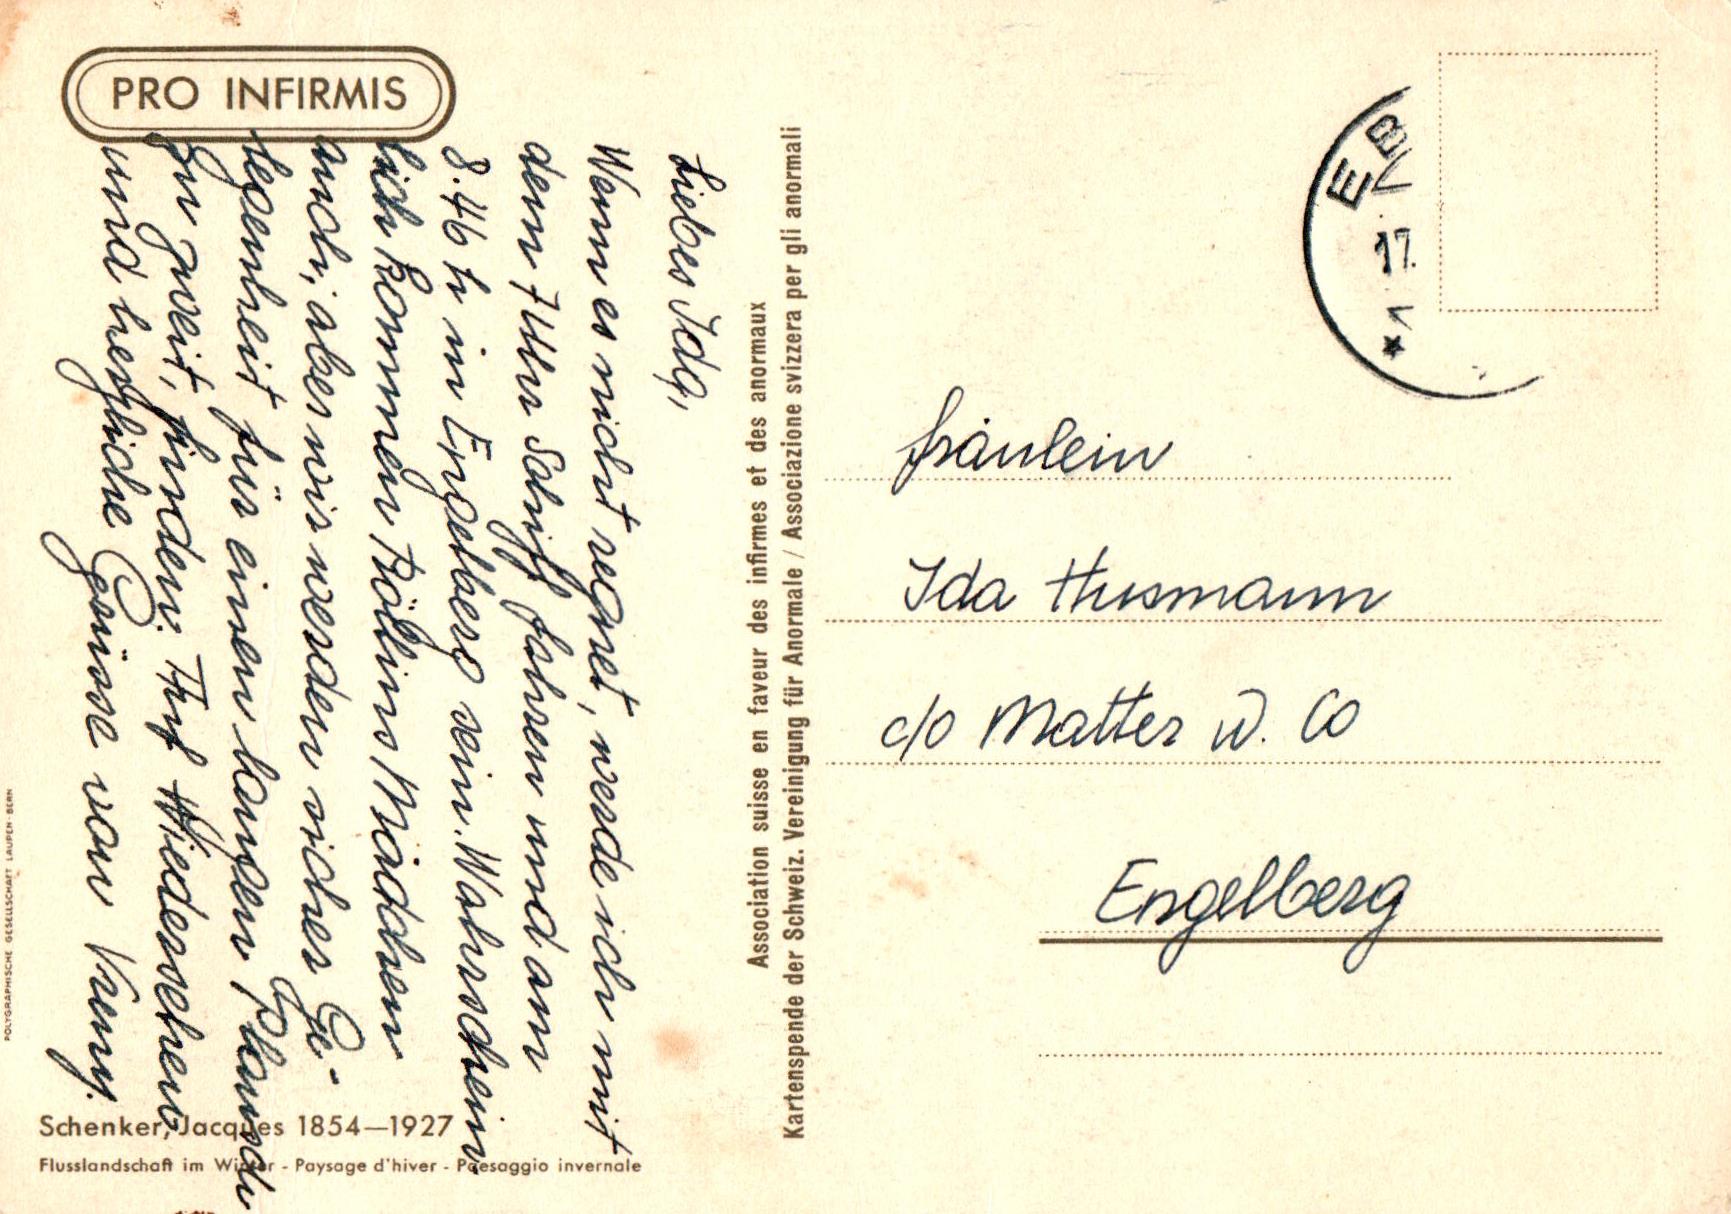 PRO INFIRMIS
Liebes Ida,
Wenn es nicht regnet, werde ich mit
dem 7 Uhr Schiff fahren und am
8.46 h in Engelberg sein. Wahrschein
lich kommen Röllins Mädchen
auch, aber wir werden sicher Ge-
legenheit für einen langen Plausch
zu zweit, finden. Auf Wiedersehen
und herzliche Grüsse von Vreny.
Schenker, Jacques 1854—1927
Flusslandschaft im Winter - Paysage d'hiver - Paesaggio invernale
POLYGRAPHISCHE GESELLSCHAFT LAUPEN-BERN
Association suisse en faveur des infirmes et des anormaux
Kartenspende der Schweiz. Vereinigung für Anormale / Associazione svizzera per gli anormali
EB
17.
Fräulein
Ida Husmann
c/o Matter u. Co
Engelberg